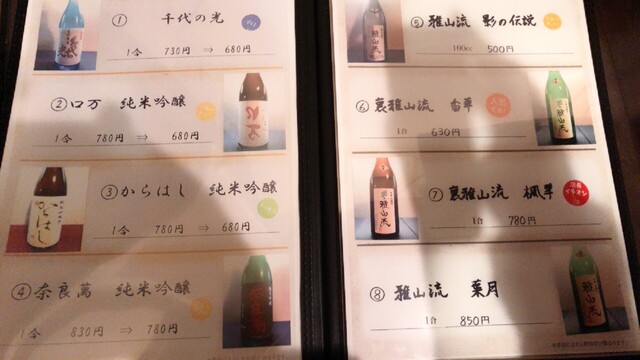 ① 千代の光
1合 730円 ⇒ 680円
② ロ万 純米吟醸
1合 780円 ⇒ 680円
③ からはし 純米吟醸
1合 780円 ⇒ 680円
④ 奈良萬 純米吟醸
1合 830円 ⇒ 780円
⑤ 雅山流 影の伝説
100cc 500円
⑥ 裏雅山流 香華
1合 630円
⑦ 裏雅山流 楓華
1合 780円
⑧ 雅山流 葉月
1合 850円